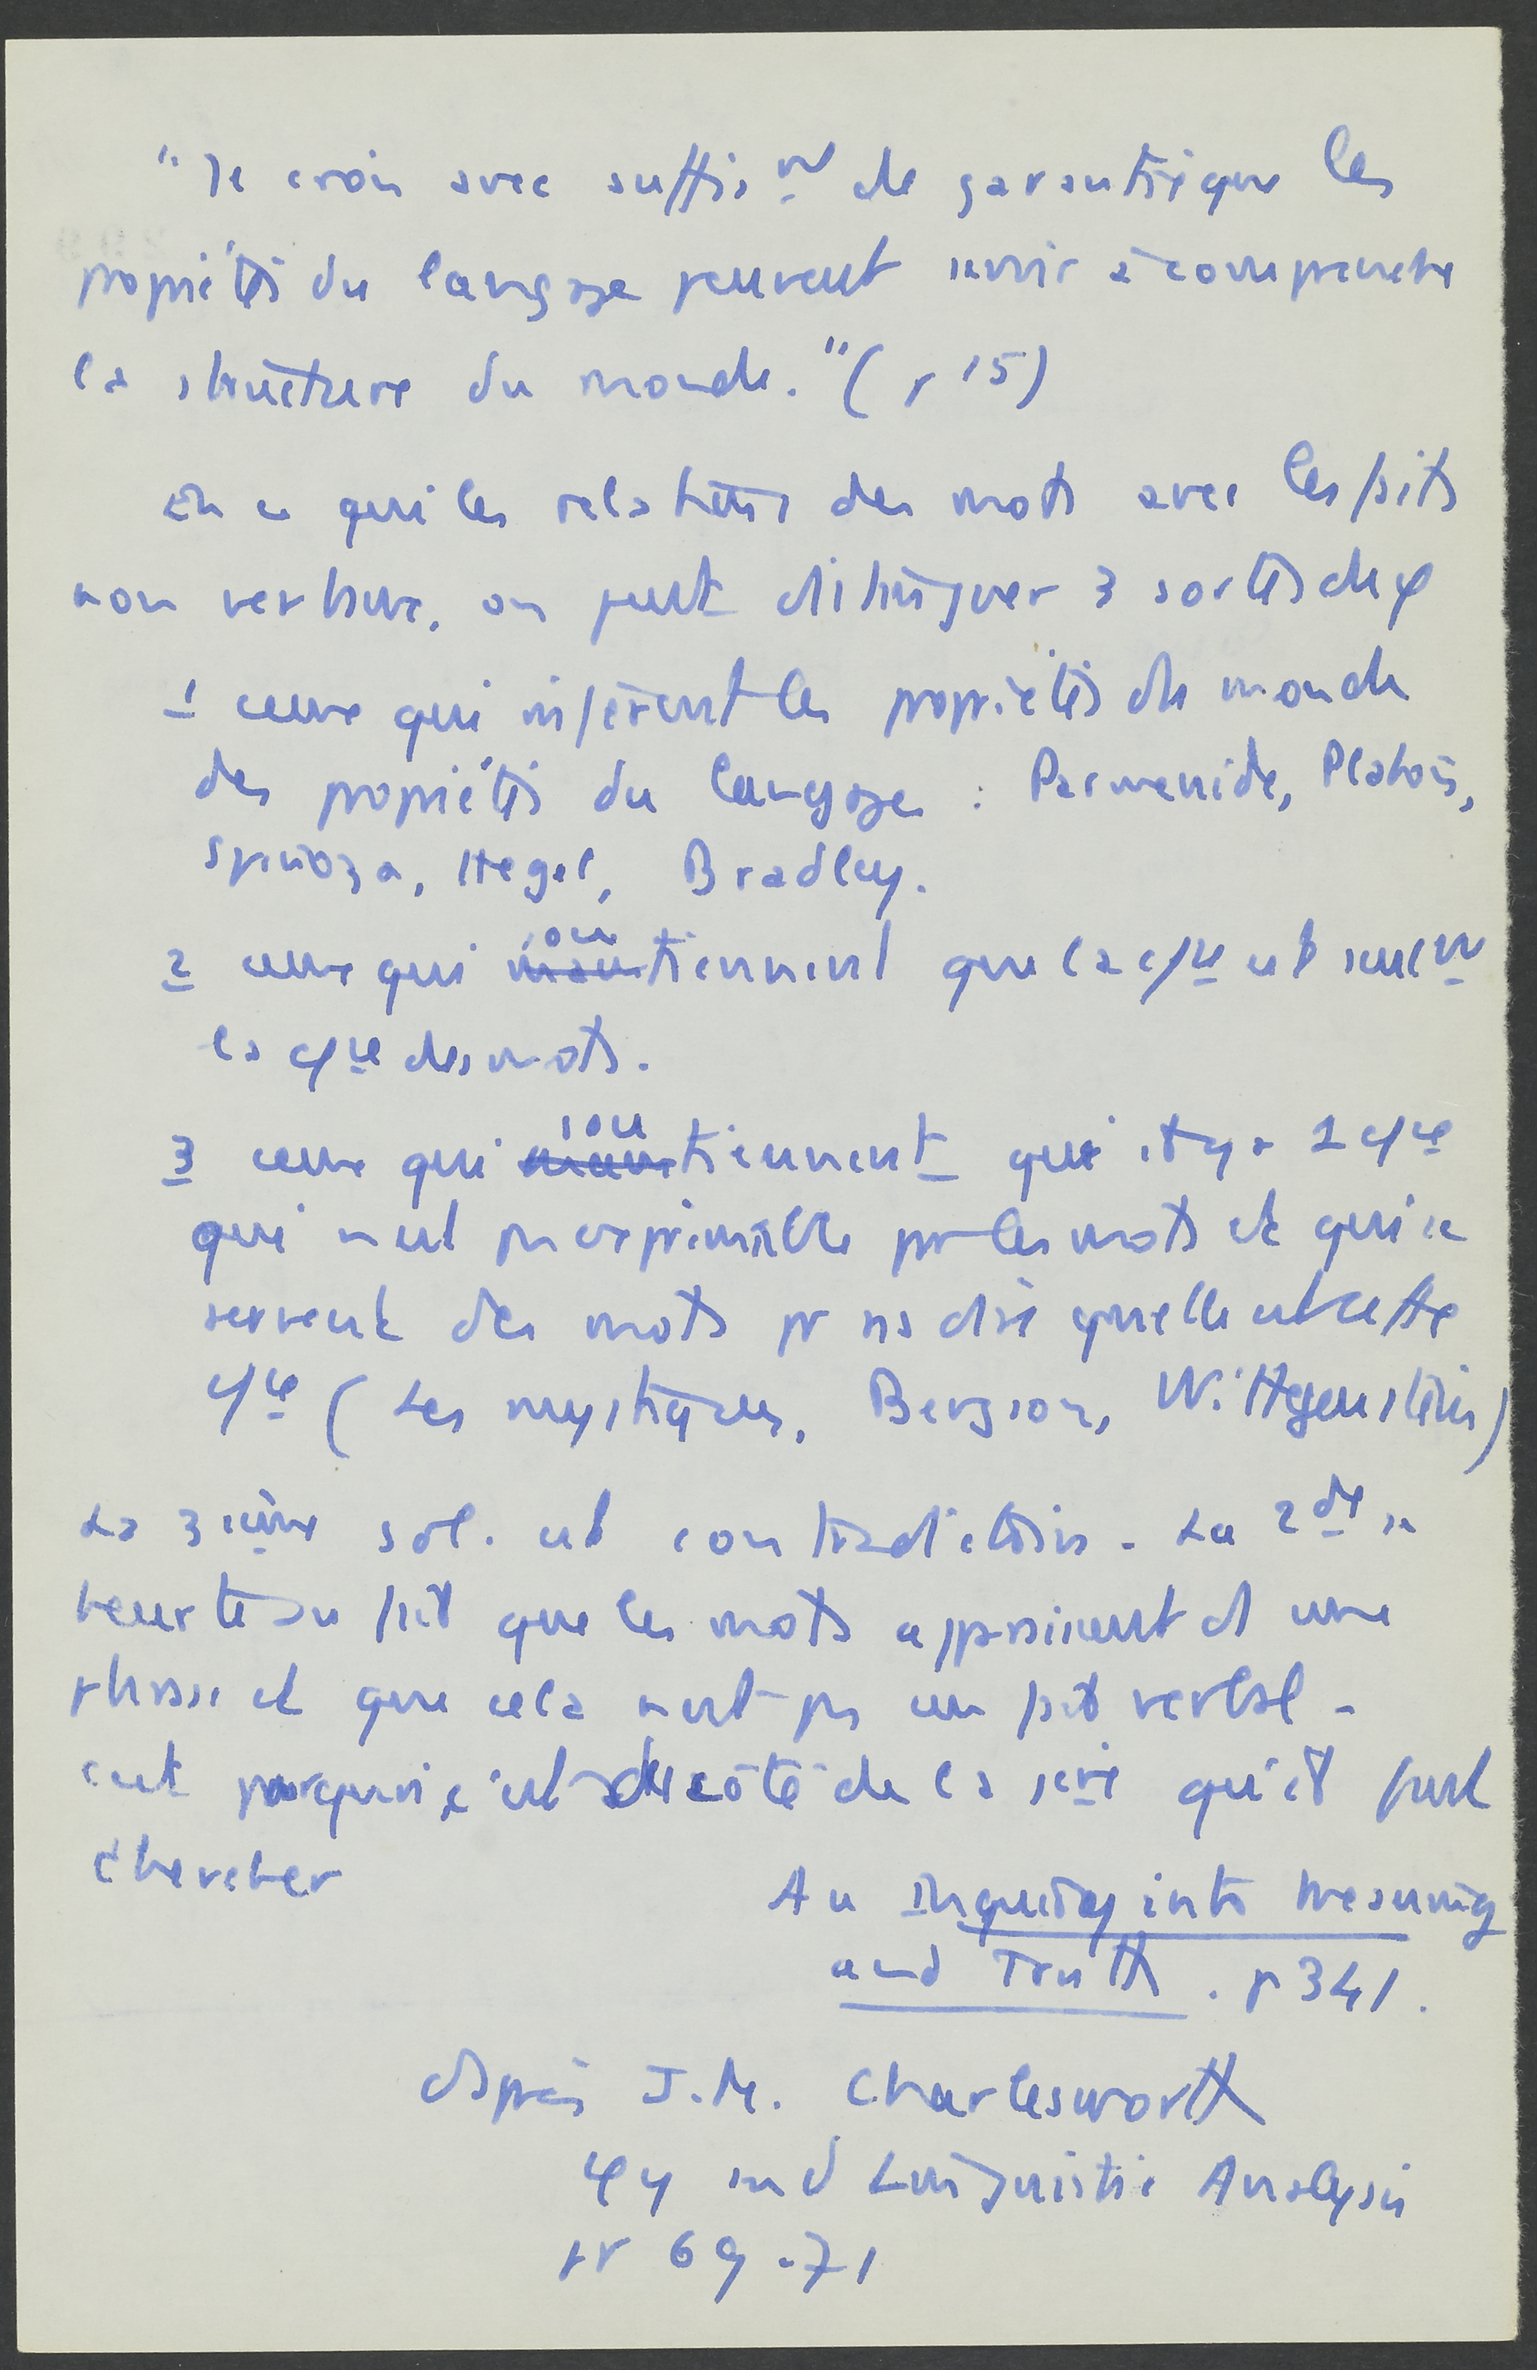 "Je crois avec suffis^mt de garantie que les
propriétés du langage peuvent servir à comprendre
la structure du monde." (p 15)
En ce qui les relations des mots avec les faits
non verbaux. on peut distinguer 3 sortes de φ
1 ceux qui infèrent les propriétés du monde
des propriétés du langage : Parmenide, Platon,
Spinoza, Hegel, Bradley.
2 ceux qui soutiennent que la c/ce est seulem^t
la c/ce des mots.
3 ceux qui soutiennent qu'il y a 1 c/ce
qui n'est pas exprimable par les mots et qui se
servent des mots pr ns dire quelle est cette
c/ce (Les mystiques, Bergson, Wittgenstein)
La 3ième sol. est contradictoire. La 2de se
heurte au fait que les mots apparaissent ds une
phrase et que cela n'est pas un fait verbal -
c'est pourquoi c'est du côté de la 1ère qu'il faut
chercher
An Inquiry into Meaning
and Truth. p 341.
d'après J.M. Charlesworth
φy and Linguistic Analysis
pp 69-71